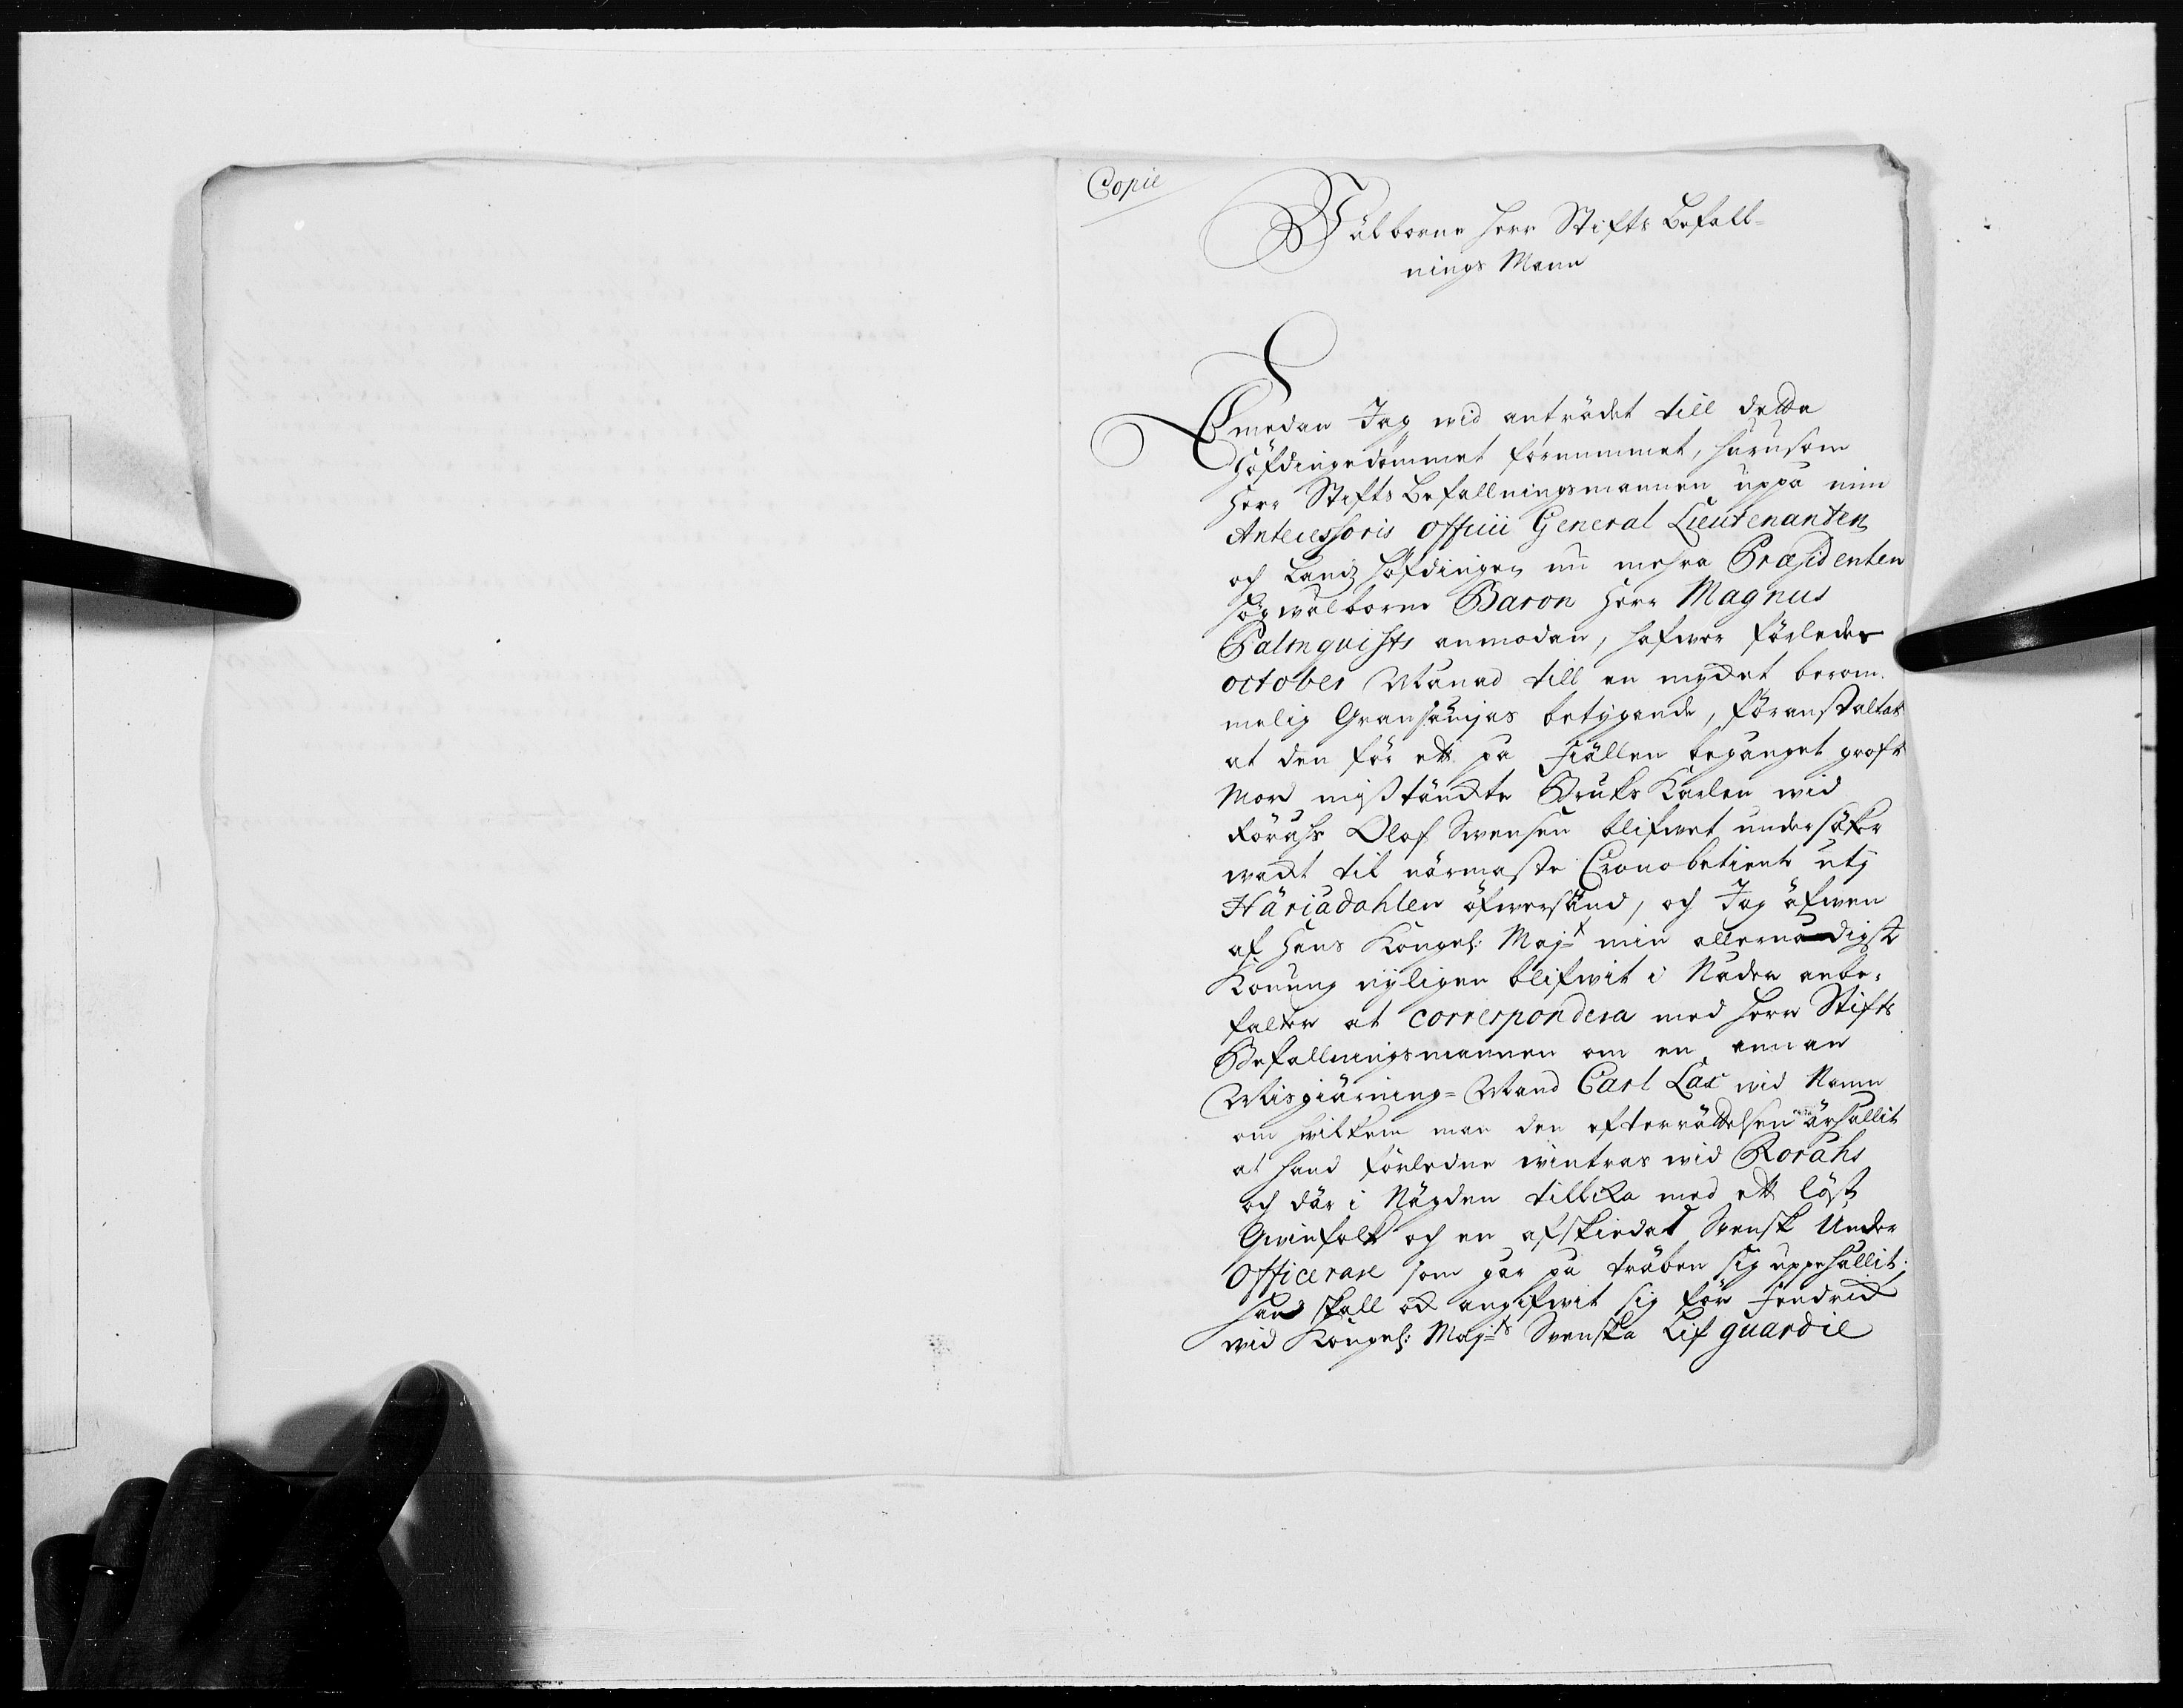 Copie
Wälborne Herr Stifts Befall-
nings Mann
Emedan Jag wid anträdet till detta
Höfdingedömmet förnummet, hurusom
Herr Stifts Befallningsmannen uppå min
Antecessoris Officii General Lieutenanten
och Landzhöfdingen nu mehra Præsidenten
Högwälborne Baron Herr Magnus
Palmquists anmodan, hafwer förleden
october Månad till en mycket beröm-
melig Gransämjas betygande, föranstaltat
at den för ett på Fiällen begånget groft
Mord misstänckte Bruks Karlen wid
Röråhs Olof Swensen blifwet under säker
wackt til närmaste Cronobetient utj
Häriådahlen öfwersänd, och Jag äfwen
af Hans Kongl: Maj:t min allernådigste
Konung nyligen blifwit i Nåder anbe-
falten at correspondera med Herr Stifts
Befallningsmannen om en annan
Misgiärning-Mand Carl Lax wid Namn
om hwilken man den efterrättelsen ärhållit
at hand förledne wintras wid Roråhs
och där i Nägden tillika med ett löst
Qwinfolk och en afskiedat Swensk Under
Officerare som går på träben sig uppehållit;
Hand skall ock angifwit sig för Fendrick
wid Kongl: Maj:ts Swenska Lif guardie